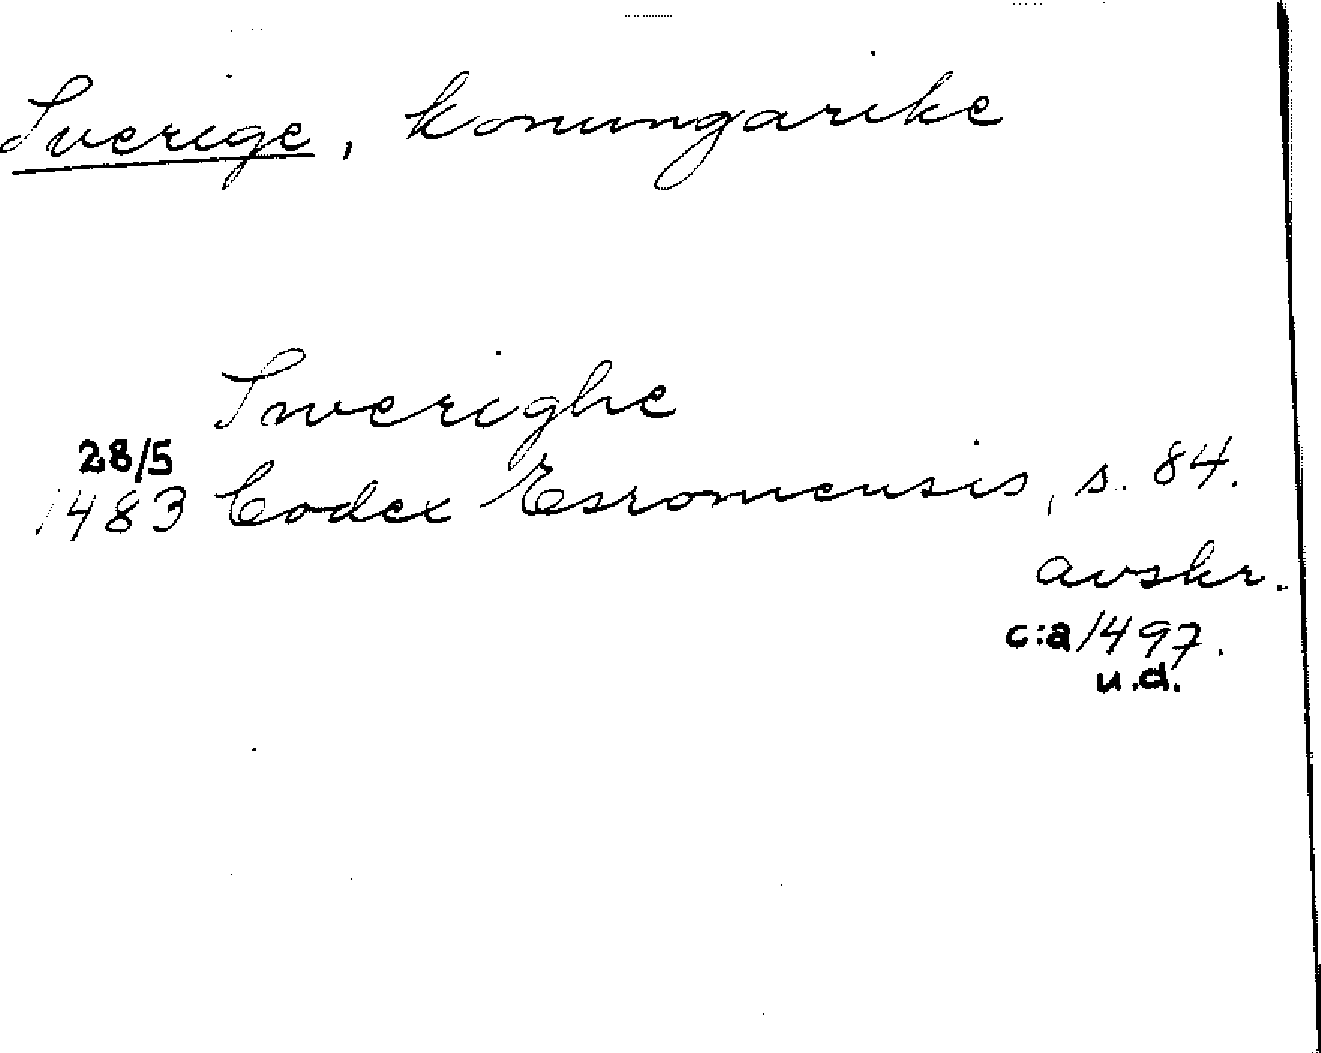 Sverige, konungarike
Swerighe
28/5
1483 Codex Esromensis, s. 84.
avskr.
c:a 1497.
u.d.